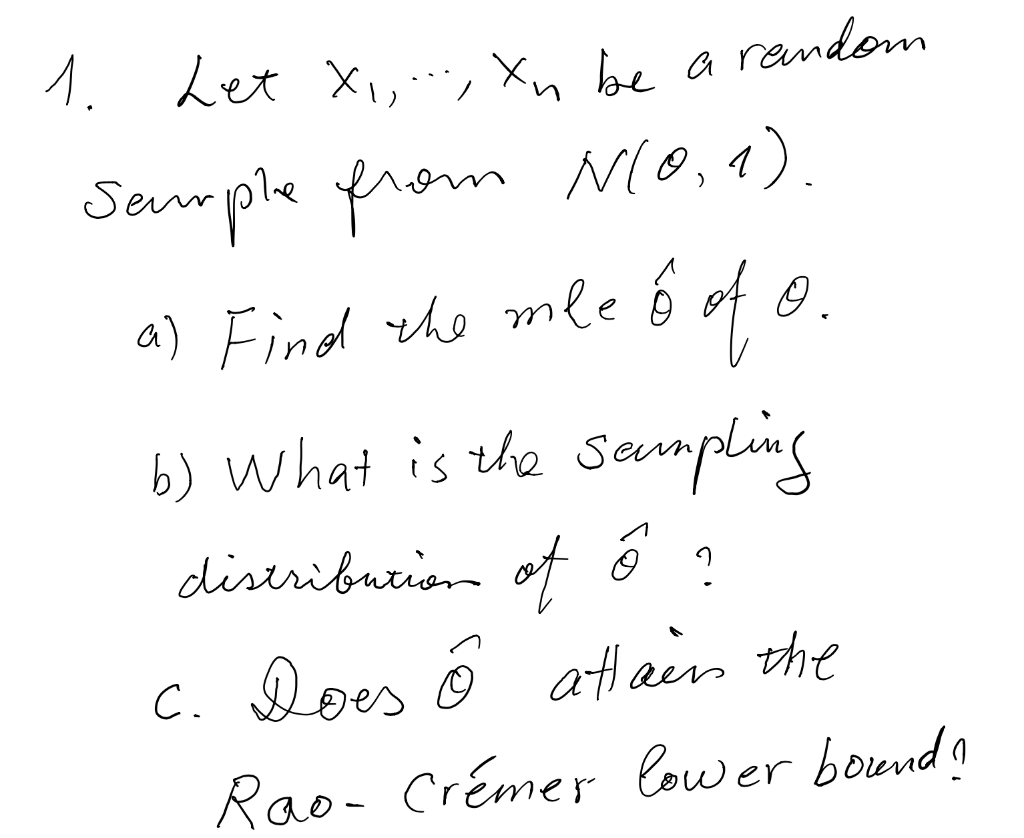 1. Let X₁, ..., Xₙ be a random
sample from N(θ, 1).
a) Find the mle θ̂ of θ.
b) What is the sampling
distribution of θ̂ ?
c. Does θ̂ attain the
Rao-Crémer lower bound?